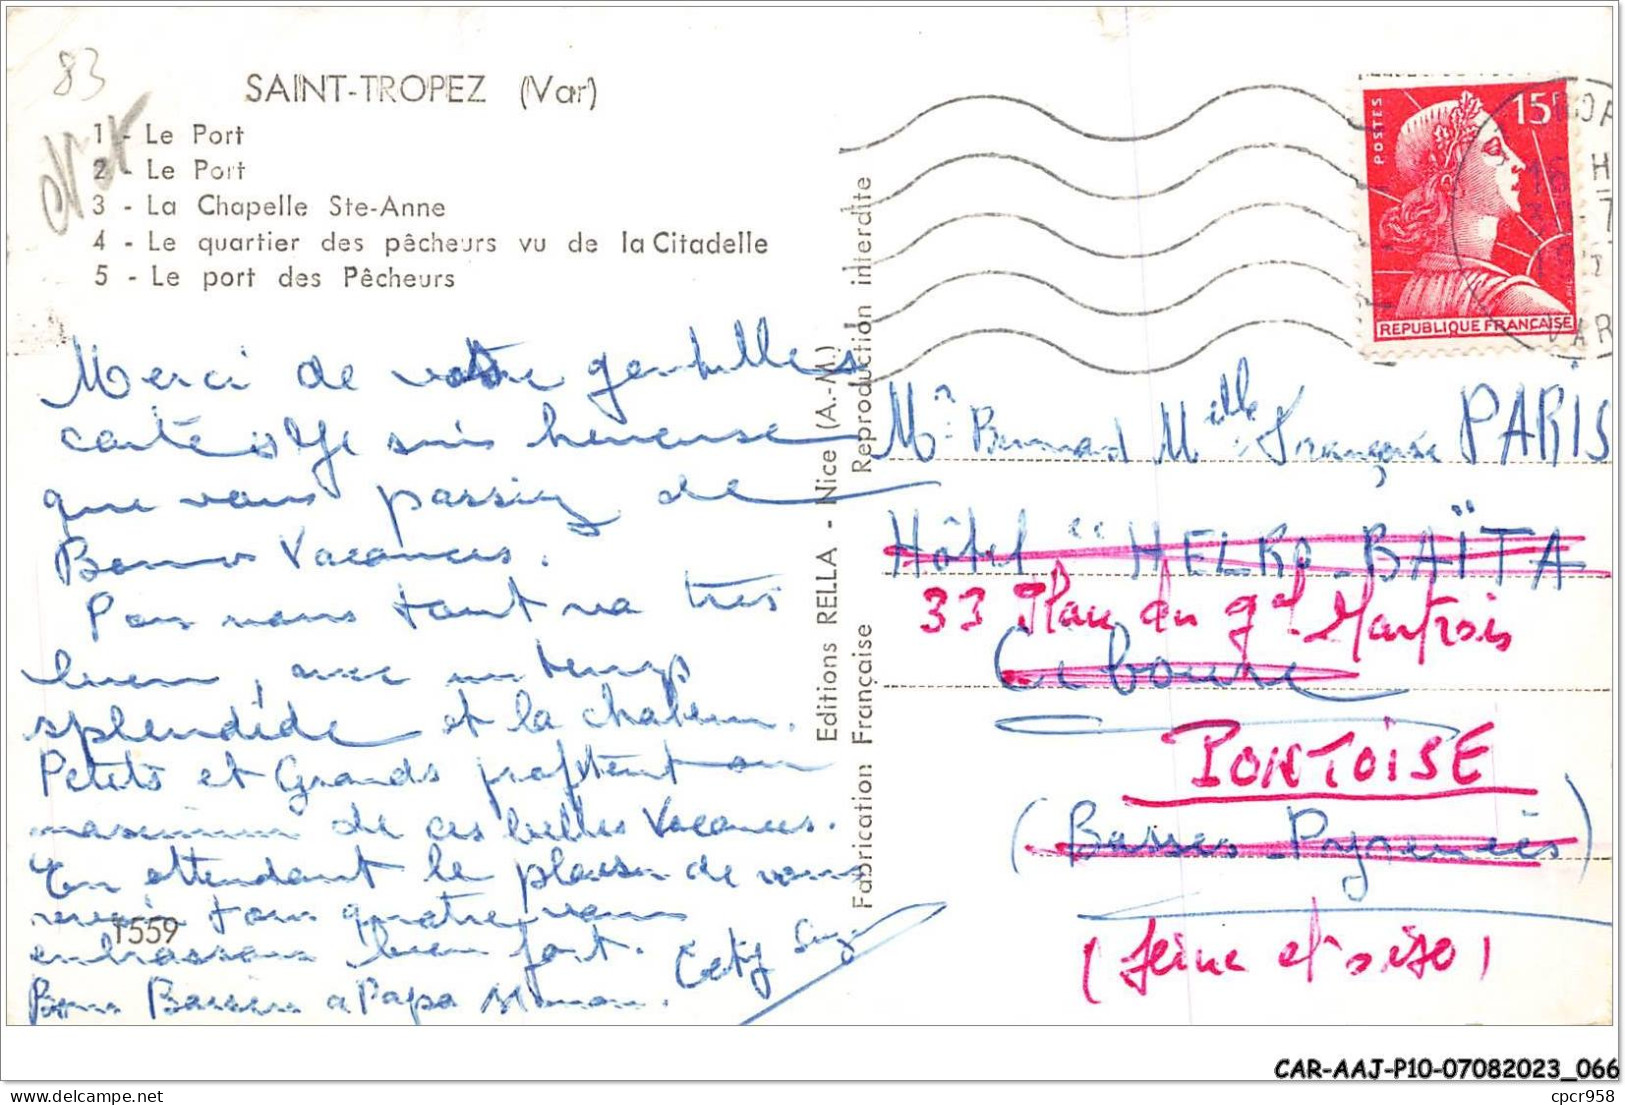 83
SAINT-TROPEZ (Var)
1 - Le Port
2 - Le Port
3 - La Chapelle Ste-Anne
4 - Le quartier des pêcheurs vu de la Citadelle
5 - Le port des Pêcheurs
Merci de votre gentilles
carte Je suis heureuse
que vous passiez de
Bonnes Vacances.
Pour nous tout va très
bien, avec un temps
splendide et la chaleur.
Petits et Grands profitent au
maximum de ces belles Vacances.
En attendant le plaisir de vous
revoir tous quatre vous
embrassons bien fort.
Bons Baisers a Papa Maman.
1559
Editions RELLA - Nice (A.-M.)
Fabrication Française
Reproduction interdite
POSTES
15F
REPUBLIQUE FRANÇAISE
VAR
Mr Bernard Melle Françoise PARIS
Hôtel "HELKO-BAÏTA
33 Place du Gal Martrois
Ciboure
PONTOISE
(Basses-Pyrénées)
(Seine et oise)
CAR-AAJ-P10-07082023_066
cpcr958